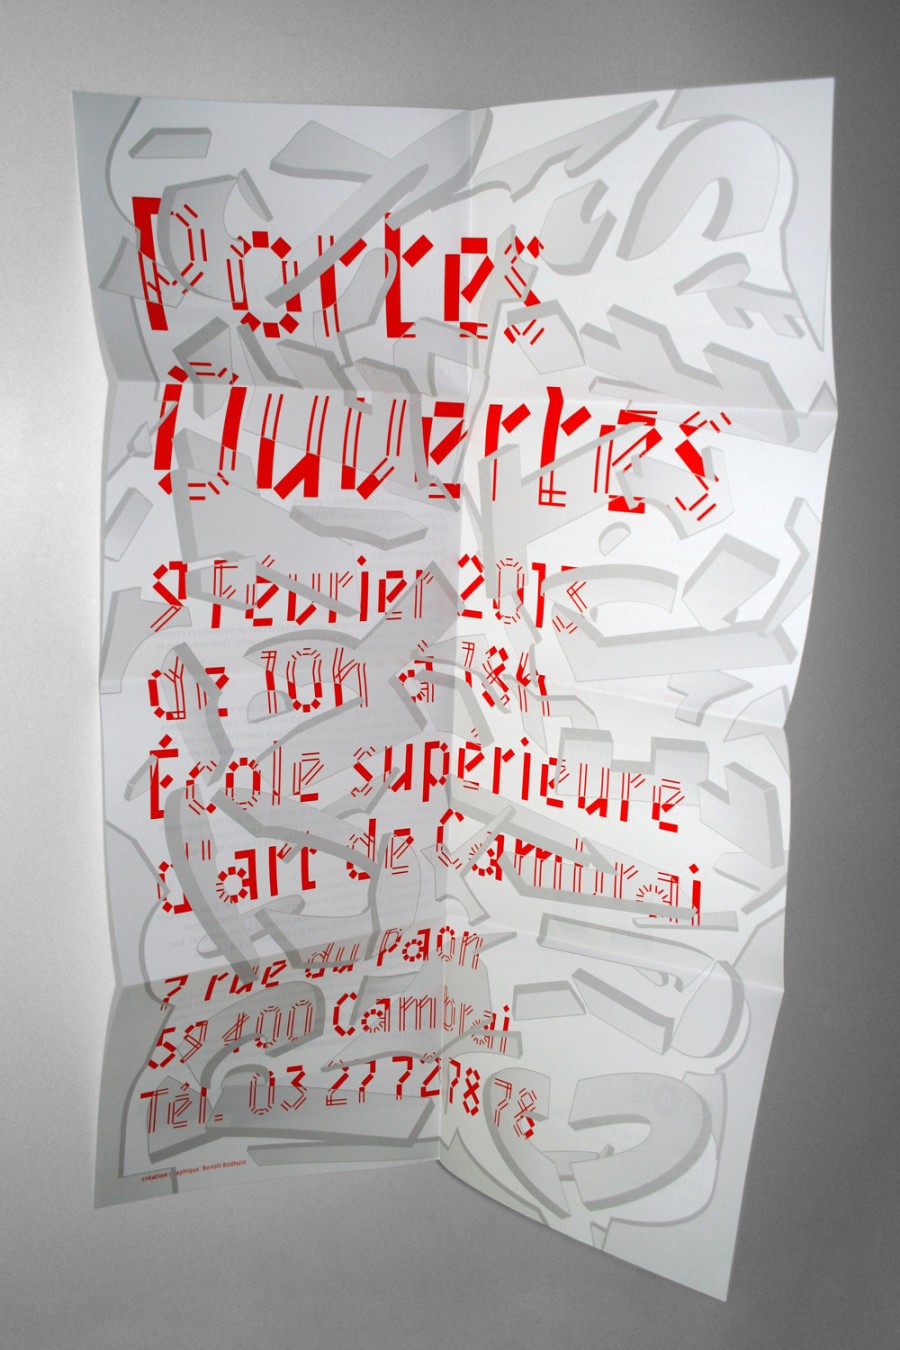 Portes
Ouvertes
9 février 2013
de 10h à 18h
École supérieure
d'art de Cambrai
7 rue du Paon
59 400 Cambrai
Tél. 03 27 72 78 78
création graphique : Benoît Bodhuin